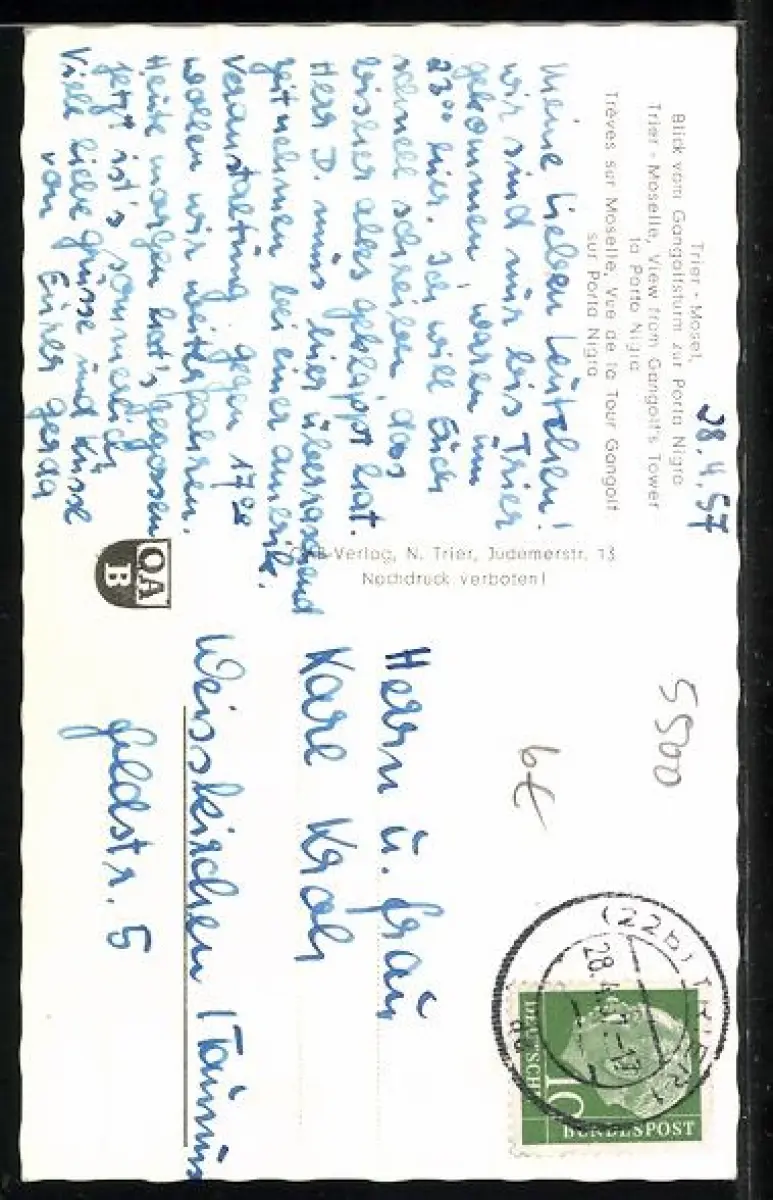 Trier - Mosel,
Blick vom Gangolfsturm zur Porta Nigra
Trier - Moselle, View from Gangolf's Tower
to Porta Nigra
Trèves sur Moselle, Vue de la Tour Gangolf
sur Porta Nigra
28.4.57
Meine lieben Leutchen!
wir sind nur bis Trier
gekommen, waren um
23⁰⁰ hier. Ich will Euch
schnell schreiben, dass
bisher alles geklappt hat.
Herr D. muss hier überraschend
teilnehmen bei einer amerik.
Veranstaltung, gegen 17⁰⁰
wollen wir weiterfahren.
Heute morgen hat's gegossen
jetzt ist's sommerlich
Viele liebe Grüsse und Küsse
von Eurer Gerda
-Verlag, N. Trier, Judemerstr. 13
Nachdruck verboten!
QA
B
5500
6€
Herrn u. Frau
Karl Kroh
Weisskirchen / Taunus
Feldstr. 5
(22b) TRIER 1
28.4.57.-17
DEUTSCHE
10
BUNDESPOST